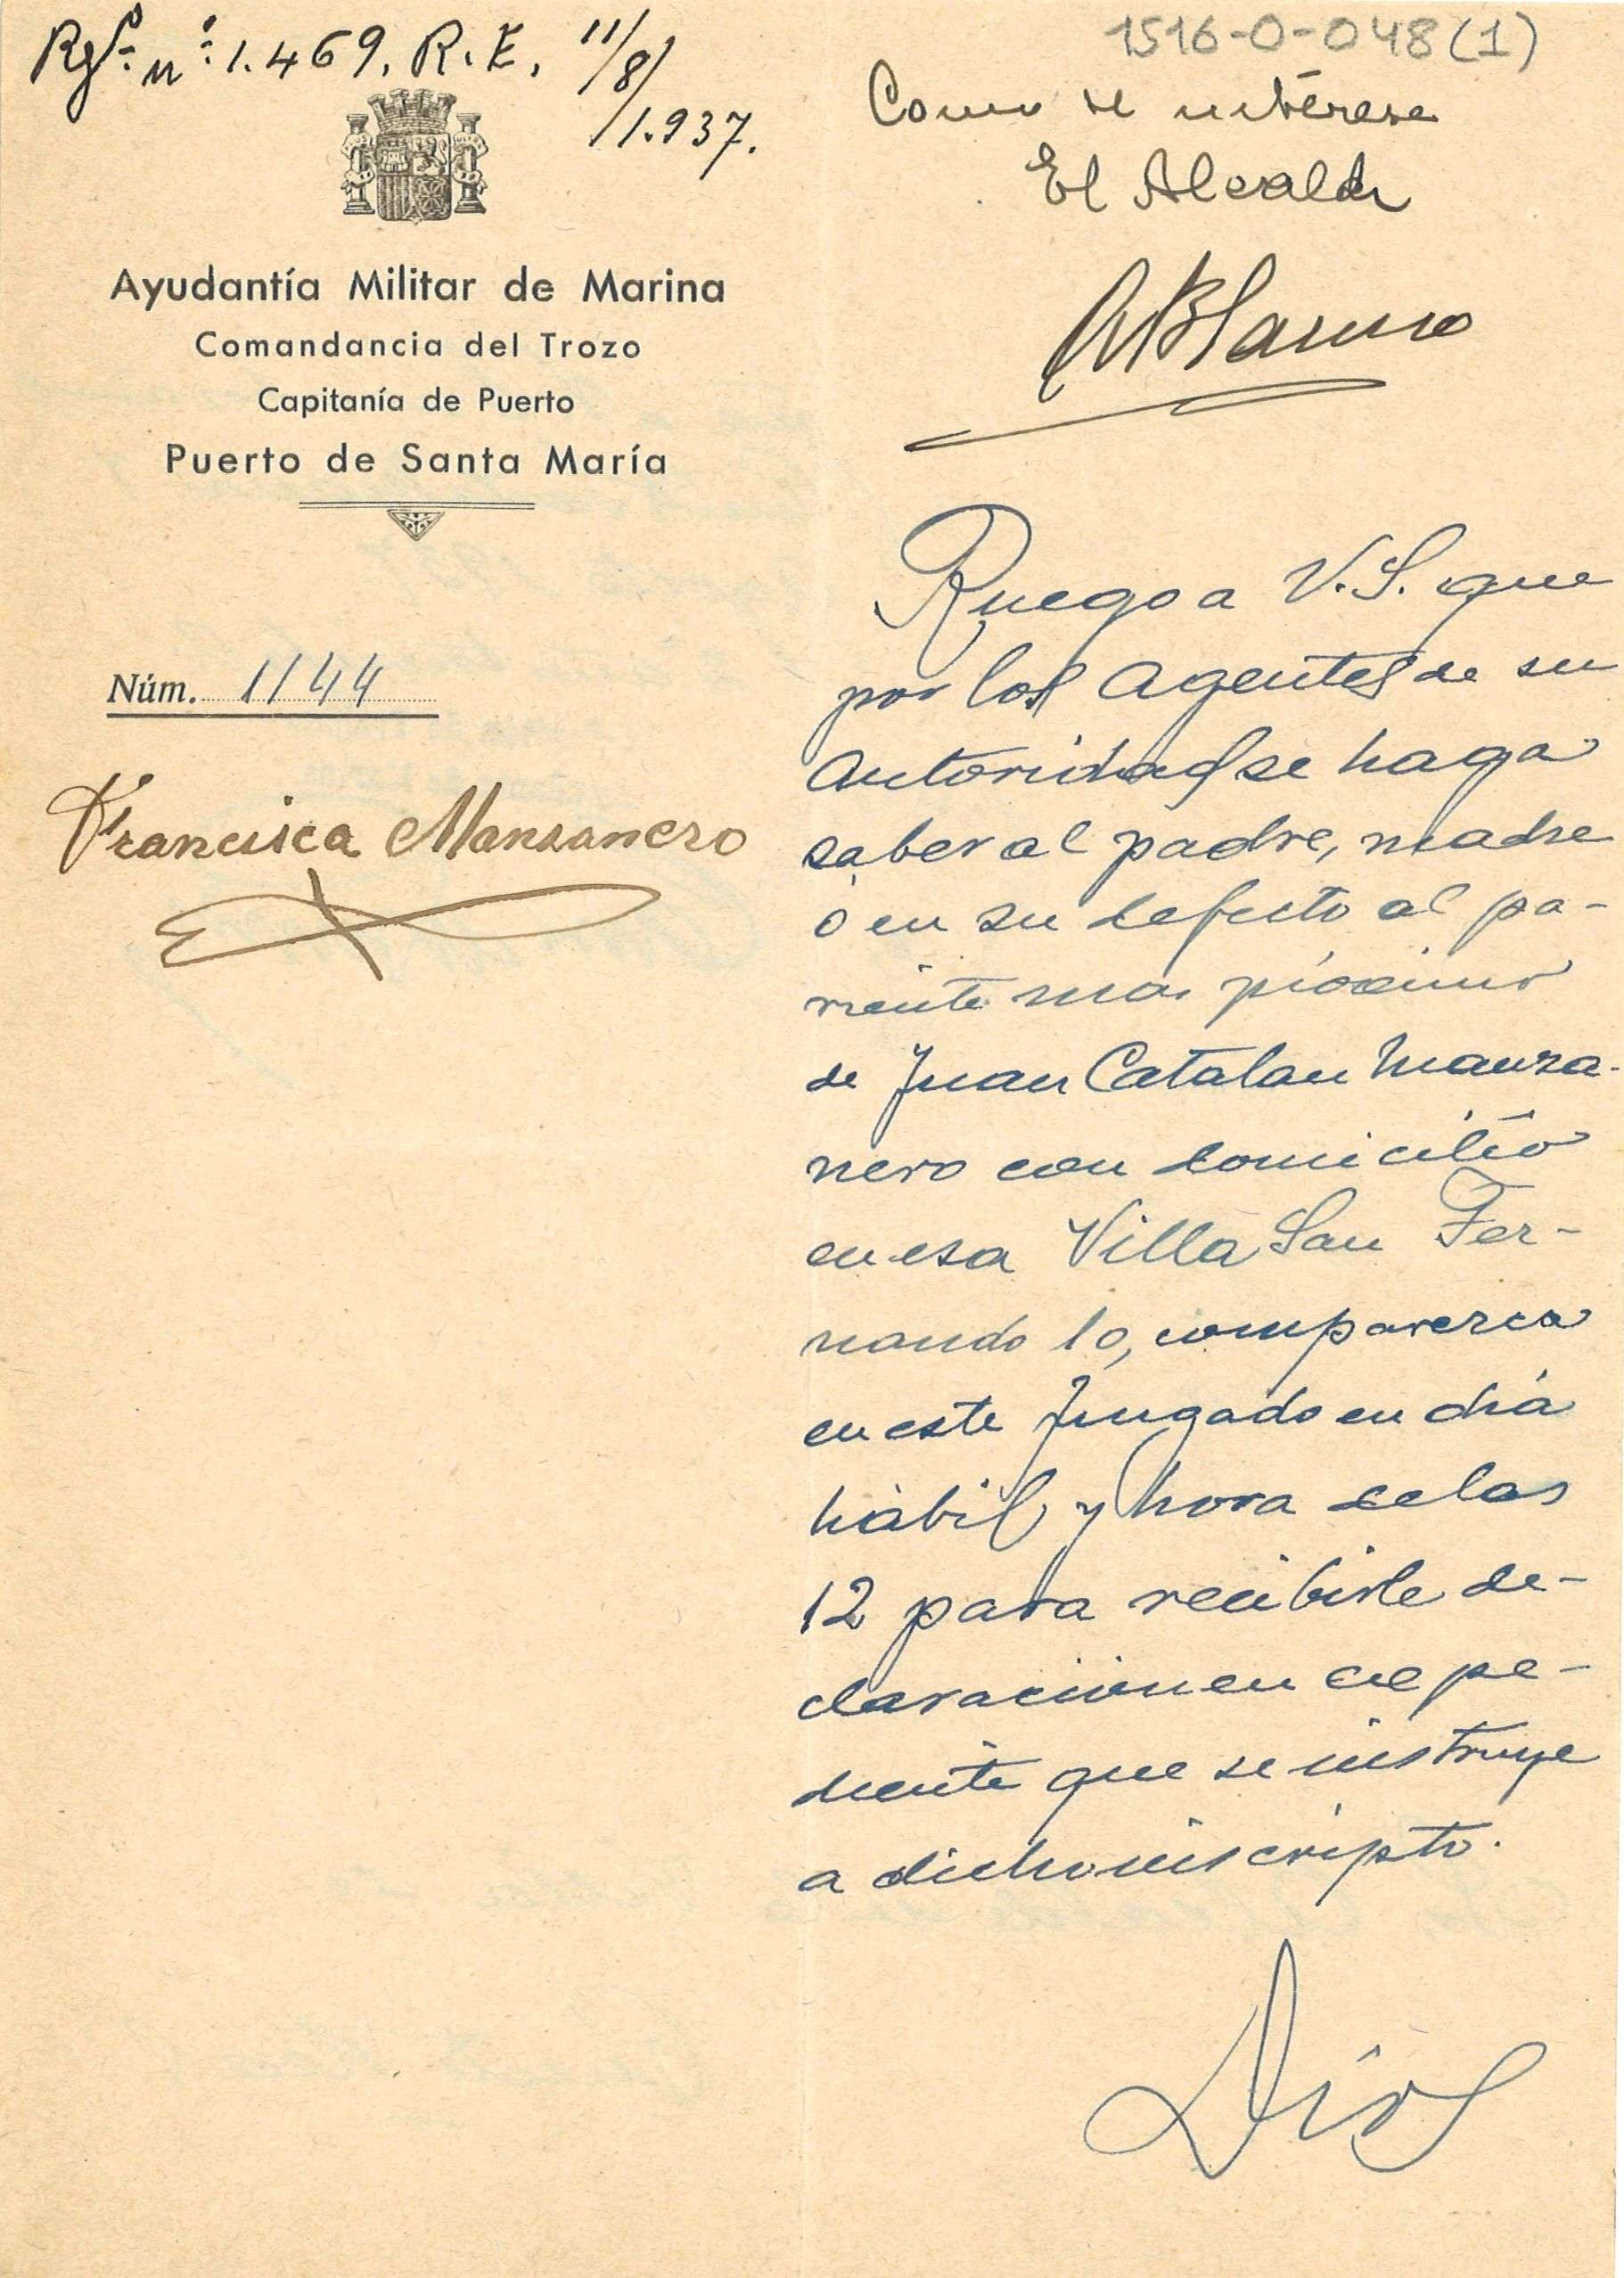 Rgº. nº: 1.469. R.E. 11/8/1.937.
1516-0-048(1)
Como se interesa
El Alcalde
Blanco
Ayudantía Militar de Marina
Comandancia del Trozo
Capitanía de Puerto
Puerto de Santa María
Núm. 1144
Francisca Mansanero
Ruego a V.S. que
por los Agentes de su
Autoridad se haga
saber al padre, madre
ó en su defecto al pa-
riente mas próximo
de Juan Catalan Manza-
nero con domicilio
en esa Villa San Fer-
nando 10, comparezca
en este Juzgado en dia
hábil y hora de las
12 para recibirle de-
claracion en expe-
diente que se instruye
a dicho inscripto.
Dios